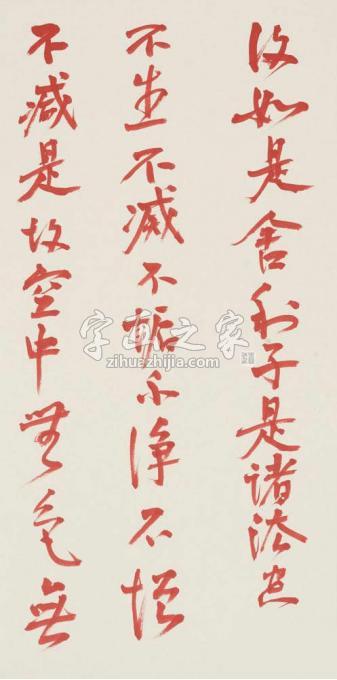 復如是舍利子是諸法空
不生不滅不垢不淨不增
不減是故空中無色無
字画之家
zihuazhijia.com